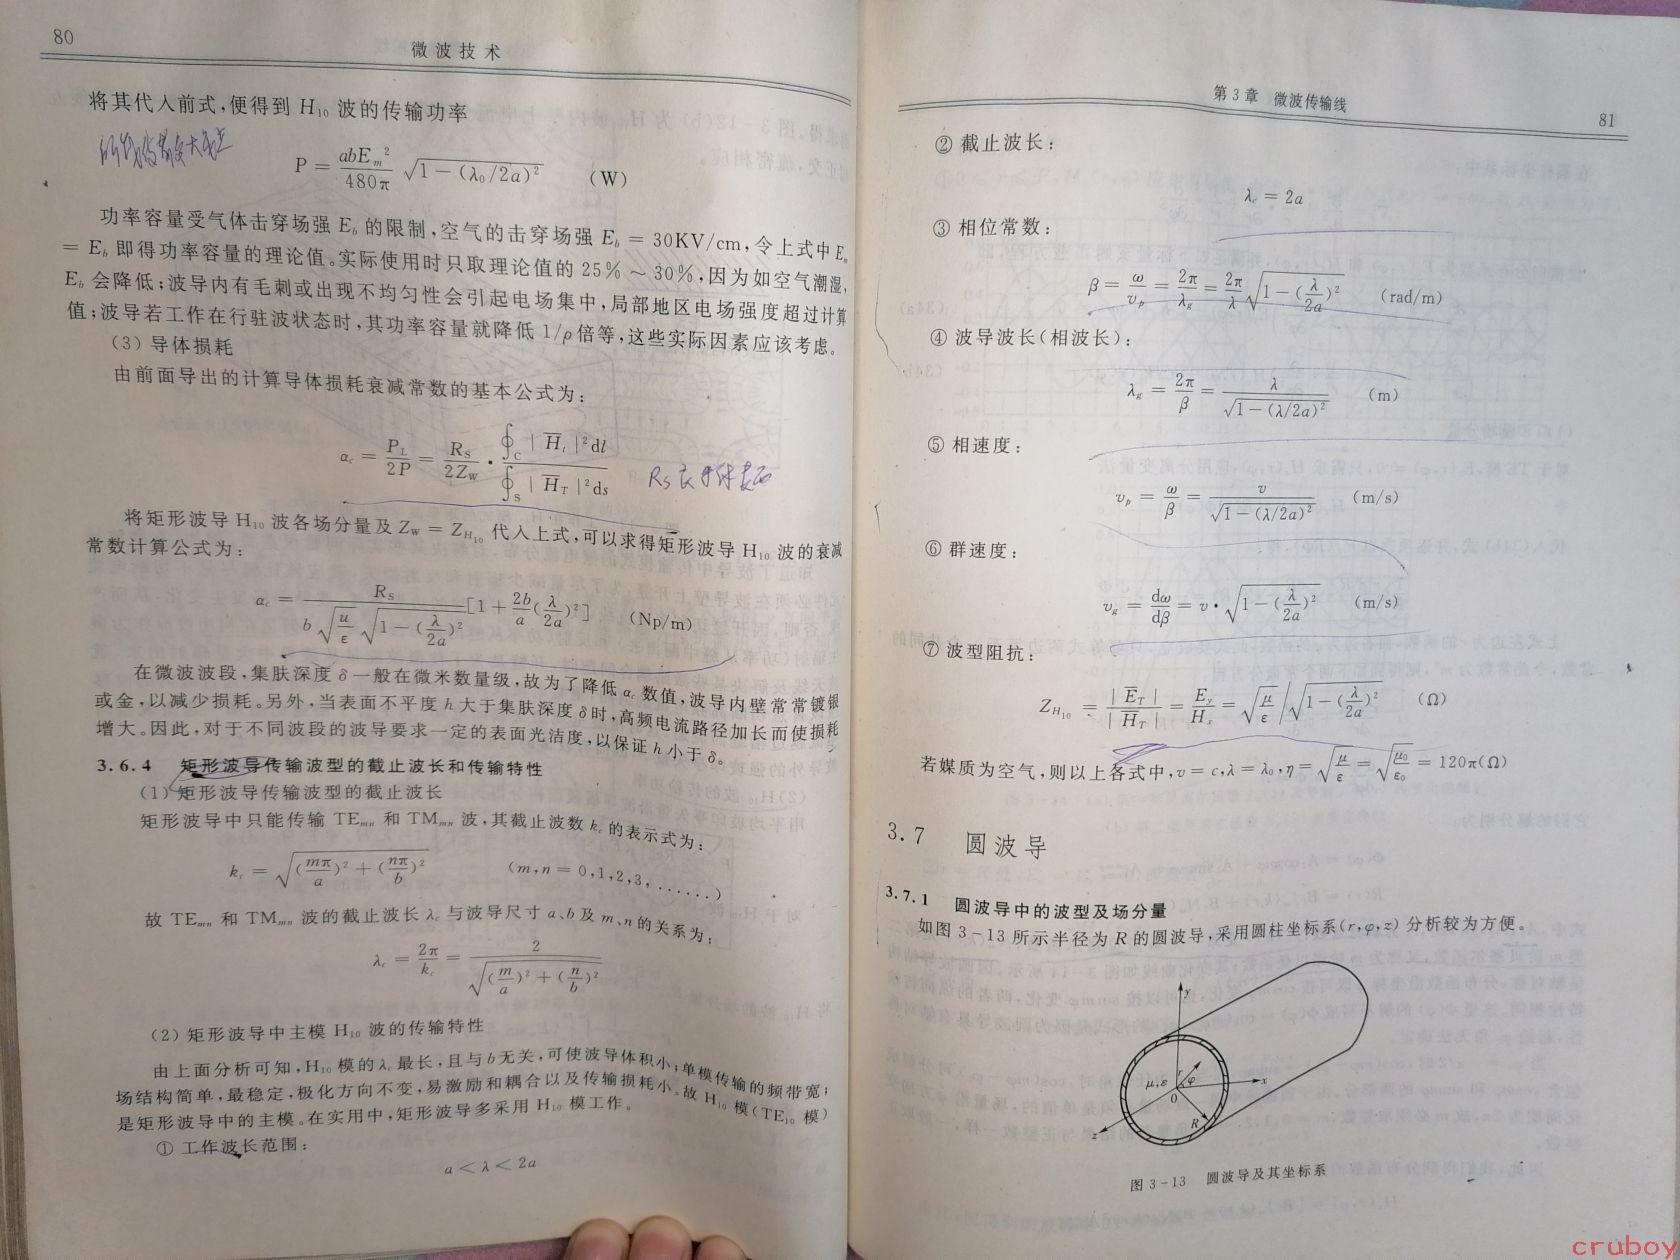 80
微波技术
将其代入前式,便得到 H₁₀ 波的传输功率
P = abEₘ²/480π √1-(λ₀/2a)² (W)
功率容量受气体击穿场强 E_b 的限制,空气的击穿场强 E_b = 30KV/cm,令上式中 Eₘ
= E_b 即得功率容量的理论值。实际使用时只取理论值的 25% ~ 30%,因为如空气潮湿,
E_b 会降低;波导内有毛刺或出现不均匀性会引起电场集中,局部地区电场强度超过计算
值;波导若工作在行驻波状态时,其功率容量就降低 1/ρ倍等,这些实际因素应该考虑。
(3) 导体损耗
由前面导出的计算导体损耗衰减常数的基本公式为:
α_c = P_L/2P = R_S/2Z_W · ∮_C |H̅_t|²dl / ∮_S |H̅_T|²ds
将矩形波导 H₁₀ 波各场分量及 Z_W = Z_H₁₀ 代入上式,可以求得矩形波导 H₁₀ 波的衰减
常数计算公式为:
α_c = R_S / (b √(u/ε) √1-(λ/2a)²) [1 + 2b/a (λ/2a)²] (Np/m)
在微波波段,集肤深度 δ 一般在微米数量级,故为了降低 α_c 数值,波导内壁常常镀银
或金,以减少损耗。另外,当表面不平度 h 大于集肤深度 δ 时,高频电流路径加长而使损耗
增大。因此,对于不同波段的波导要求一定的表面光洁度,以保证 h 小于 δ。
3.6.4 矩形波导传输波型的截止波长和传输特性
(1) 矩形波导传输波型的截止波长
矩形波导中只能传输 TEₘₙ 和 TMₘₙ 波,其截止波数 k_c 的表示式为:
k_c = √(mπ/a)² + (nπ/b)² (m,n = 0,1,2,3,......)
故 TEₘₙ 和 TMₘₙ 波的截止波长 λ_c 与波导尺寸 a、b 及 m、n 的关系为:
λ_c = 2π/k_c = 2/√(m/a)² + (n/b)²
(2) 矩形波导中主模 H₁₀ 波的传输特性
由上面分析可知,H₁₀ 模的 λ_c 最长,且与 b 无关,可使波导体积小;单模传输的频带宽;
场结构简单,最稳定,极化方向不变,易激励和耦合以及传输损耗小。故 H₁₀ 模(TE₁₀ 模)
是矩形波导中的主模。在实用中,矩形波导多采用 H₁₀ 模工作。
① 工作波长范围:
a < λ < 2a
第 3 章 微波传输线
81
② 截止波长:
λ_c = 2a
③ 相位常数:
β = ω/v_p = 2π/λ_g = 2π/λ √1-(λ/2a)² (rad/m)
④ 波导波长(相波长):
λ_g = 2π/β = λ/√1-(λ/2a)² (m)
⑤ 相速度:
v_p = ω/β = v/√1-(λ/2a)² (m/s)
⑥ 群速度:
v_g = dω/dβ = v·√1-(λ/2a)² (m/s)
⑦ 波型阻抗:
Z_H₁₀ = |E̅_T|/|H̅_T| = E_y/H_x = √(μ/ε) / √1-(λ/2a)² (Ω)
若媒质为空气,则以上各式中,v = c,λ = λ₀,η = √(μ/ε) = √(μ₀/ε₀) = 120π(Ω)
3.7 圆波导
3.7.1 圆波导中的波型及场分量
如图 3-13 所示半径为 R 的圆波导,采用圆柱坐标系(r,φ,z) 分析较为方便。
y
μ,ε
r
φ
x
0
R
z
图 3-13 圆波导及其坐标系
cruboy